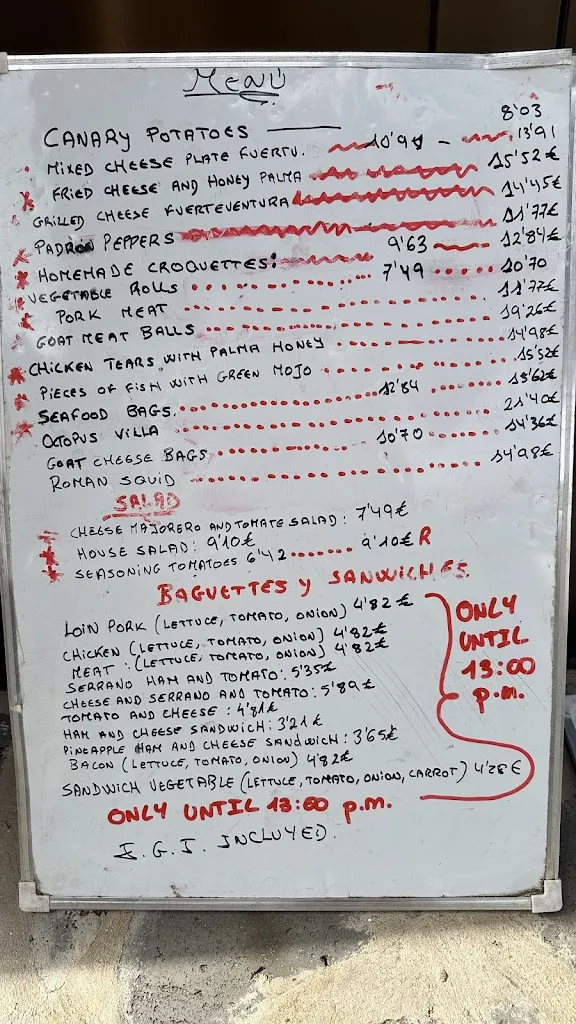 MENÚ
CANARY POTATOES 8'03
MIXED CHEESE PLATE FUERTU. 10'99 - 13'91
FRIED CHEESE AND HONEY PALMA 15'52€
GRILLED CHEESE FUERTEVENTURA 14'45€
PADRON PEPPERS 11'77€
HOMEMADE CROQUETTES: 9'63 12'84€
VEGETABLE ROLLS 7'49 10'70
PORK MEAT 11'77€
GOAT MEAT BALLS 19'26€
CHICKEN TEARS WITH PALMA HONEY 14'98€
PIECES OF FISH WITH GREEN MOJO 15'52€
SEAFOOD BAGS. 12'84 13'62€
OCTOPUS VILLA 21'40€
GOAT CHEESE BAGS 10'70 14'36€
ROMAN SQUID 14'98€
SALAD
CHEESE MAJORERO AND TOMATE SALAD: 7'49€
HOUSE SALAD: 9'10€
SEASONING TOMATOES 6'42 9'10€ R
BAGUETTES Y SANWICHES.
LOIN PORK (LETTUCE, TOMATO, ONION) 4'82€
CHICKEN (LETTUCE, TOMATO, ONION) 4'82€
MEAT : (LETTUCE, TOMATO, ONION) 4'82€
SERRANO HAM AND TOMATO: 5'35€
CHEESE AND SERRANO AND TOMATO: 5'89€
TOMATO AND CHEESE : 4'81€
HAM AND CHEESE SANDWICH: 3'21€
PINEAPPLE HAM AND CHEESE SANDWICH: 3'65€
BACON (LETTUCE, TOMATO, ONION) 4'82€
SANDWICH VEGETABLE (LETTUCE, TOMATO, ONION, CARROT) 4'28€
ONLY
UNTIL
13:00
p.m.
ONLY UNTIL 13:00 p.m.
I.G.I. INCLUYED.